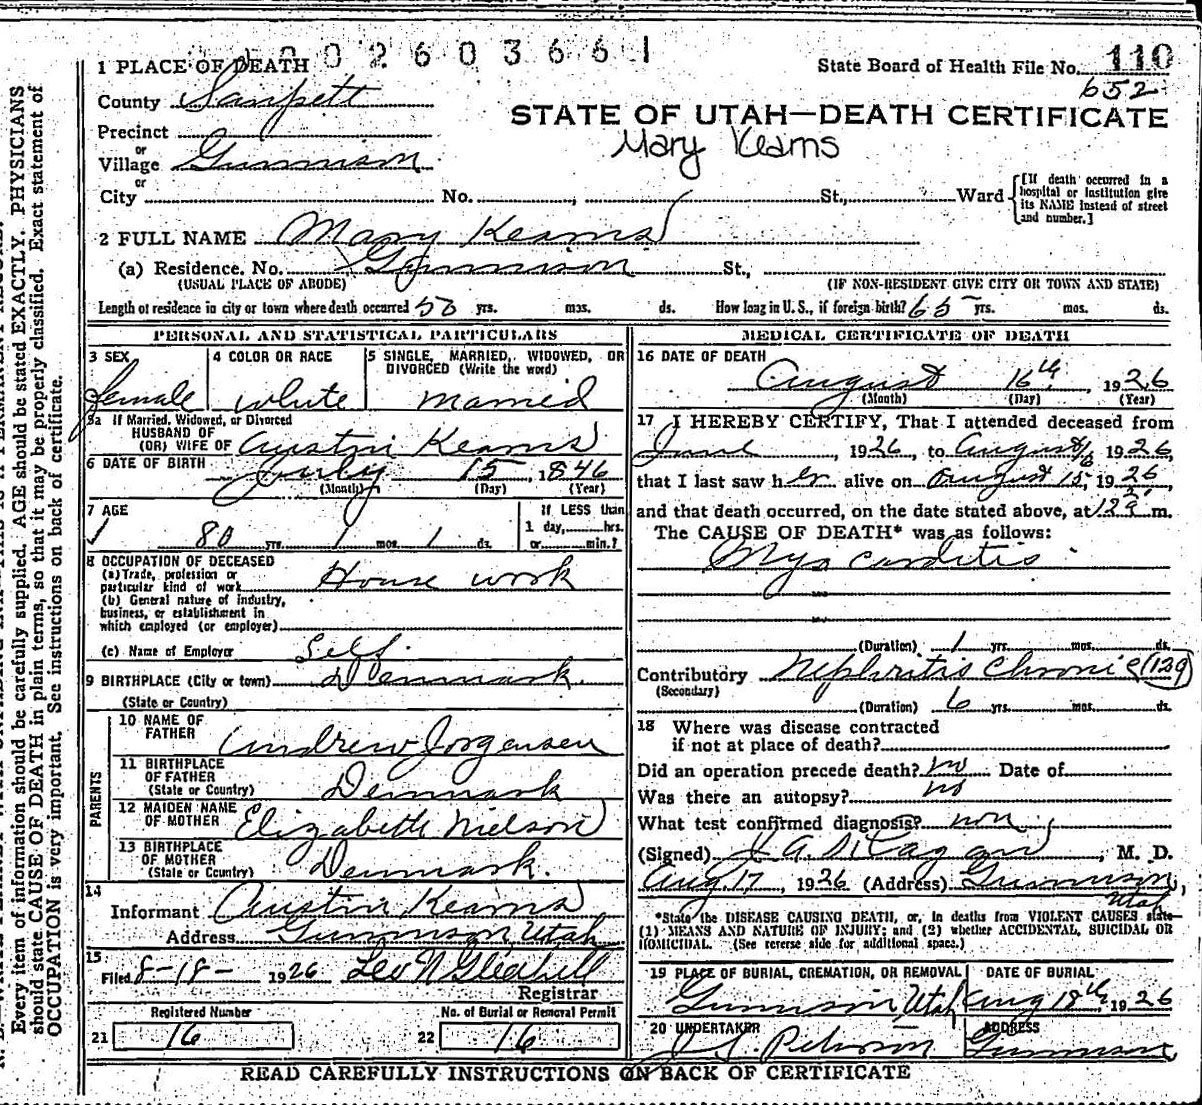 002603661
1 PLACE OF DEATH
State Board of Health File No. 110
652
County Sanpett
STATE OF UTAH—DEATH CERTIFICATE
Precinct
Mary Kearns
or
Village Gunnison
or
City No. , St., Ward
[If death occurred in a hospital or institution give its NAME instead of street and number.]
2 FULL NAME Mary Kearns
(a) Residence. No. Gunnison St.,
(USUAL PLACE OF ABODE) (IF NON-RESIDENT GIVE CITY OR TOWN AND STATE)
Length of residence in city or town where death occurred 50 yrs. mos. ds. How long in U.S., if foreign birth? 65 yrs. mos. ds.
PERSONAL AND STATISTICAL PARTICULARS
3 SEX
female
4 COLOR OR RACE
white
5 SINGLE, MARRIED, WIDOWED, OR
DIVORCED (Write the word)
married
5a If Married, Widowed, or Divorced
HUSBAND OF
(OR) WIFE OF Austin Kearns
6 DATE OF BIRTH July 15, 1846
(Month) (Day) (Year)
7 AGE
80 yrs. 1 mos. 1 ds.
If LESS than
1 day, hrs.
or min.?
8 OCCUPATION OF DECEASED
(a) Trade, profession or
particular kind of work House work
(b) General nature of industry,
business, or establishment in
which employed (or employer)
(c) Name of Employer Self.
9 BIRTHPLACE (City or town) Denmark.
(State or Country)
PARENTS
10 NAME OF
FATHER Andrew Jorgensen
11 BIRTHPLACE
OF FATHER
(State or Country) Denmark
12 MAIDEN NAME
OF MOTHER Elizabeth Nielson
13 BIRTHPLACE
OF MOTHER
(State or Country) Denmark.
14
Informant Austin Kearns
Address Gunnison, Utah
15
Filed 8-18- 1926 Leo N Gledhill
Registrar
Registered Number
21 16
No. of Burial or Removal Permit
22 16
MEDICAL CERTIFICATE OF DEATH
16 DATE OF DEATH
August 16th, 1926
(Month) (Day) (Year)
17 I HEREBY CERTIFY, That I attended deceased from
June, 1926, to August 16 1926,
that I last saw her alive on August 15, 1926,
and that death occurred, on the date stated above, at m.
The CAUSE OF DEATH* was as follows:
Myo carditis
(Duration) 1 yrs. mos. ds.
Contributory Nephritis Chronic (129)
(Secondary)
(Duration) 6 yrs. mos. ds.
18 Where was disease contracted
if not at place of death?
Did an operation precede death? no Date of
Was there an autopsy? no
What test confirmed diagnosis?
(Signed) , M. D.
Aug. 17, 1926 (Address) Gunnison,
Utah
*State the DISEASE CAUSING DEATH, or, in deaths from VIOLENT CAUSES state
(1) MEANS AND NATURE OF INJURY; and (2) whether ACCIDENTAL, SUICIDAL OR
HOMICIDAL. (See reverse side for additional space.)
19 PLACE OF BURIAL, CREMATION, OR REMOVAL
Gunnison, Utah
DATE OF BURIAL
Aug 18th, 1926
20 UNDERTAKER
Peterson
ADDRESS
Gunnison
READ CAREFULLY INSTRUCTIONS ON BACK OF CERTIFICATE
Every item of information should be carefully supplied. AGE should be stated EXACTLY. PHYSICIANS
should state CAUSE OF DEATH in plain terms, so that it may be properly classified. Exact statement of
OCCUPATION is very important. See instructions on back of certificate.